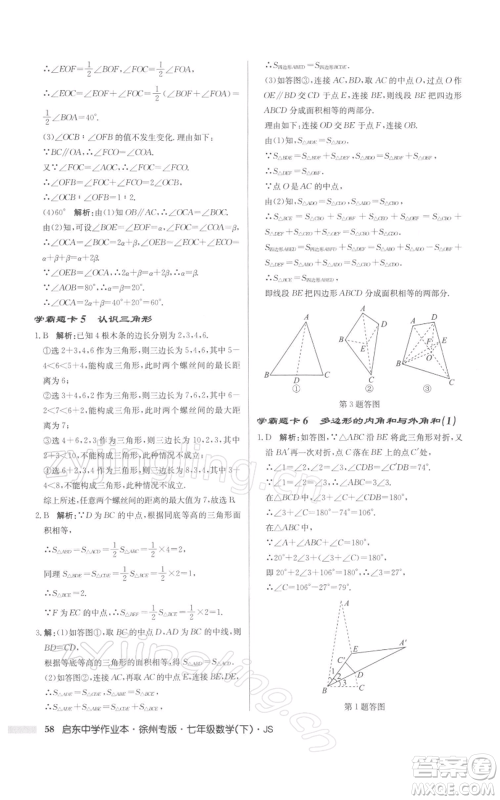 ∴∠EOF=1/2∠BOF,∠FOC=1/2∠FOA,
∴∠EOC=∠EOF+∠FOC=1/2∠BOF+1/2∠FOA
=1/2∠BOA=40°.
(3)∠OCB:∠OFB的值不发生变化.理由如下:
∵BC∥OA,∴∠FCO=∠COA.
又∵∠FOC=∠AOC,∴∠FOC=∠FCO.
∴∠OFB=∠FOC+∠FCO=2∠OCB.
∴∠OCB:∠OFB=1:2.
(4)60° 解析:由(1)知OB∥AC,∴∠OCA=∠BOC.
由(2)知,可设∠BOE=∠EOF=α,∠FOC=∠COA=β,
∴∠OCA=∠BOC=2α+β,∠OEB=∠EOC+∠ECO=
α+β+β=α+2β.
∵∠OEB=∠OCA,∴2α+β=α+2β.∴α=β.
∵∠AOB=80°,∴α=β=20°.
∴∠OCA=2α+β=40°+20°=60°.
学霸题卡5 认识三角形
1.B 解析:已知4根木条的边长分别为2,3,4,6.
①选2+3,4,6作为三角形,则三边长为5,4,6,5-
4<6<5+4,能构成三角形,此时两个螺丝间的最长距
离为6;
②选3+4,6,2作为三角形,则三边长为2,7,6,6-
2<7<6+2,能构成三角形,此时两个螺丝间的最大距
离为7;
③选4+6,2,3作为三角形,则三边长为10,2,3,2+
3<10,不能构成三角形,此种情况不成立;
④选6+2,3,4作为三角形,则三边长为8,3,4,而3+
4<8,不能构成三角形,此种情况不成立.
综上所述,任两个螺丝间的距离之最大值为7.故选B.
2.B 解析:∵D为BC的中点,根据同底等高的三角形面
积相等,
∴S△ABD=S△ACD=1/2S△ABC=1/2×4=2.
同理S△BDE=S△CDE=1/2S△BCE=1/2×2=1,
∴S△BCE=2.
∵F为EC的中点,∴S△BEF=1/2S△BCE=1/2×2=1.
3.解:(1)如答图①,取BC的中点D,AD为△ABC的中线,则
BD=CD.
根据等底等高的三角形的面积相等,得S△ABD=S△ACD.
∴S△ADE=S△CDE,∴S△ADE=S△CDE,
∴S△ADE+S△ADE=S△CDE+S△ADE.
∴S四边形ABED=S四边形BCDE.
(3)如答图③,连接AC,取AC的中点O,过点O作
OE∥BD交CD于点E,连接BE,则直线BE把四边形
ABCD分成面积相等的两部分.
理由如下:连接OD,OB,设BE与OD交于点F.
由(1)知,S△BDE=S△BDO,
∵S△BDE=S△BDF+S△DEF,S△BDO=S△BDF+S△OBF,
∴S△DEF=S△OBF.
∵点O是AC的中点,
由(2)知,S△ADO=S△CDO,S△ABO=S△CBO,
∴S△BCE=S△CBO+S△CDO+S△OBF-S△DEF=
S△CBO+S△CDO,
S四边形ABED=S△ABO+S△ADO+S△DEF-S△OBF=
S△ABO+S△ADO,
∴S△BCE=S四边形ABED,
∴直线BE把四边形ABCD分成面积相等的两部分.
A
B D C
①
②
③
第3题答图
学霸题卡6 多边形的内角和与外角和(1)
1.D 解析:如答图,∵△ABC沿着DE将三角形对折,又
沿BA′再一次对折,点C落在BE上的点C′处,
∴∠1=∠2,∠2=∠3,∠CDB=∠C′DB=74°.
∴∠1=∠2=∠3.
在△BCD中,∠3+∠C+∠CDB=180°,
∴∠3+∠C=180°-74°=106°.
在△ABC中,
∵∠A+∠ABC+∠C=180°,
∴20°+2∠3+(∠3+∠C)=180°,
即20°+2∠3+106°=180°,
∴∠3=27°.
∴∠C=106°-27°=79°.
A
A′
E
C′
D
B
C
1
2
3
第1题答图
58 启东中学作业本·徐州专版·七年级数学(下)·JS